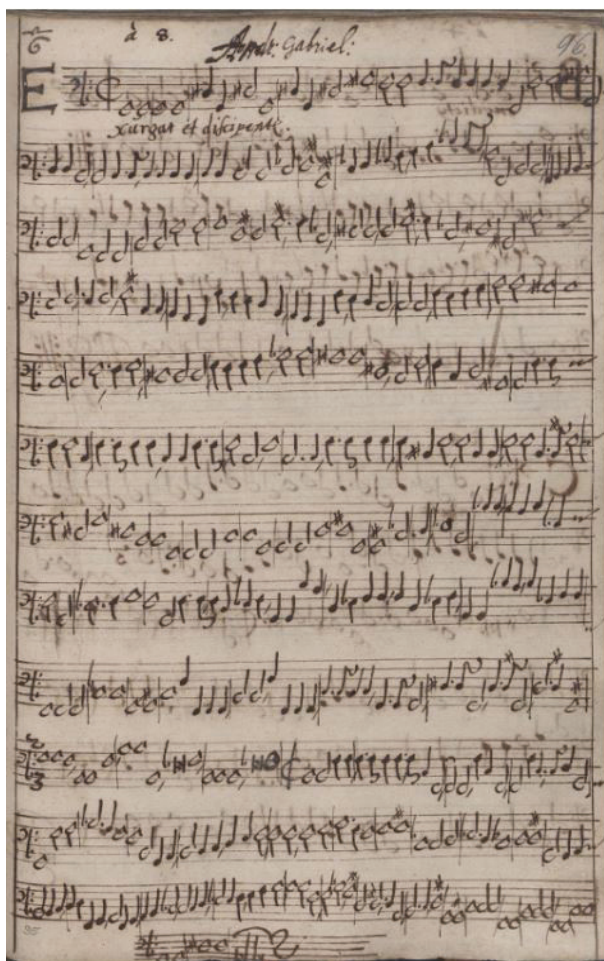 6 à 8. Andr: Gabriel: 96.
E
xurgat et discipent
3